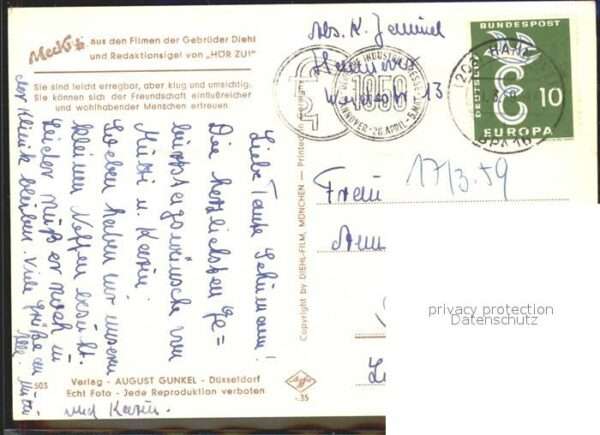 Mecki aus den Filmen der Gebrüder Diehl
und Redaktionsigel von „HÖR ZU!"
Sie sind leicht erregbar, aber klug und umsichtig.
Sie können sich der Freundschaft einflußreicher
und wohlhabender Menschen erfreuen.
Liebe Tante Lehmann!
Die herzlichsten Ge=
burtstagswünsche von
Mutti u. Karin.
Soeben haben wir unseren
kleinen Neffen besucht.
Leider muß er noch in
der Klinik bleiben. Viele Grüße an
Alle. Mutti
und Karin.
503
Verlag - AUGUST GUNKEL - Düsseldorf
Echt Foto - Jede Reproduktion verboten
Copyright by DIEHL-FILM, MÜNCHEN — Printed in Germany
Agfa
35
Abs. K.
Hannover
13
INDUSTRIE MESSE
1959
HANNOVER · 26. APRIL - 5. MAI
HANN
DEUTSCHE BUNDESPOST
10
EUROPA
17/3.59
Frau
privacy protection
Datenschutz